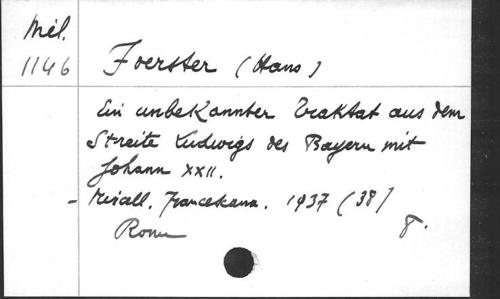 Mél.
1146
Foerster (Hans)
Ein unbekannter Traktat aus dem
Streite Ludwigs des Bayern mit
Johann XXII.
- Miscall. Francekana. 1937 (38)
Rome 8.